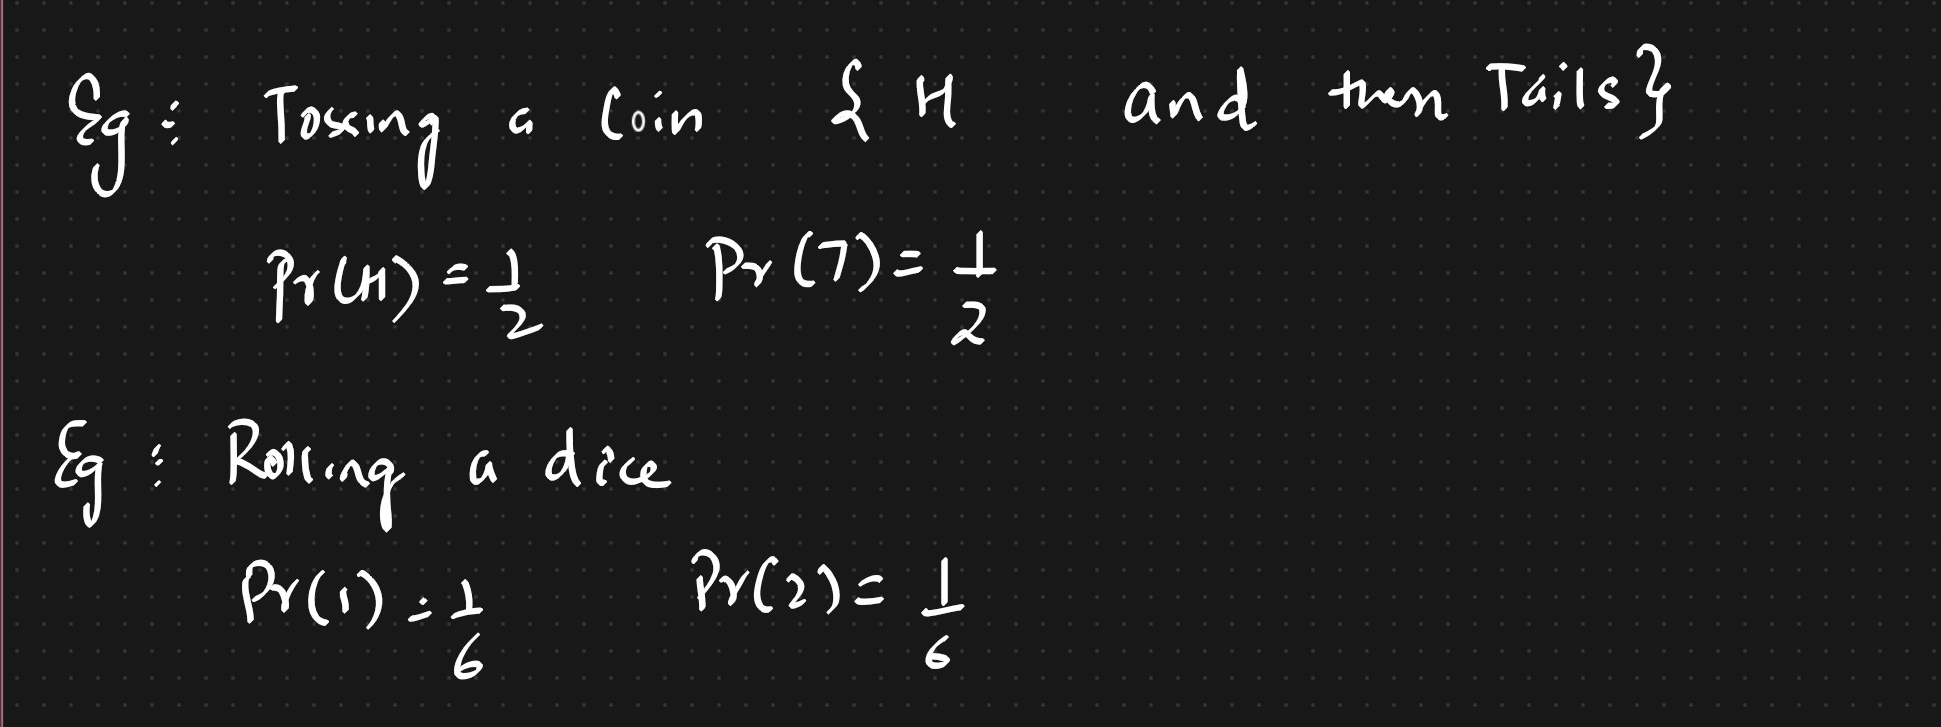 Eg : Tossing a Coin { H and then Tails}
Pr(H) = 1/2 Pr(T) = 1/2
Eg : Rolling a dice
Pr(1) = 1/6 Pr(2) = 1/6